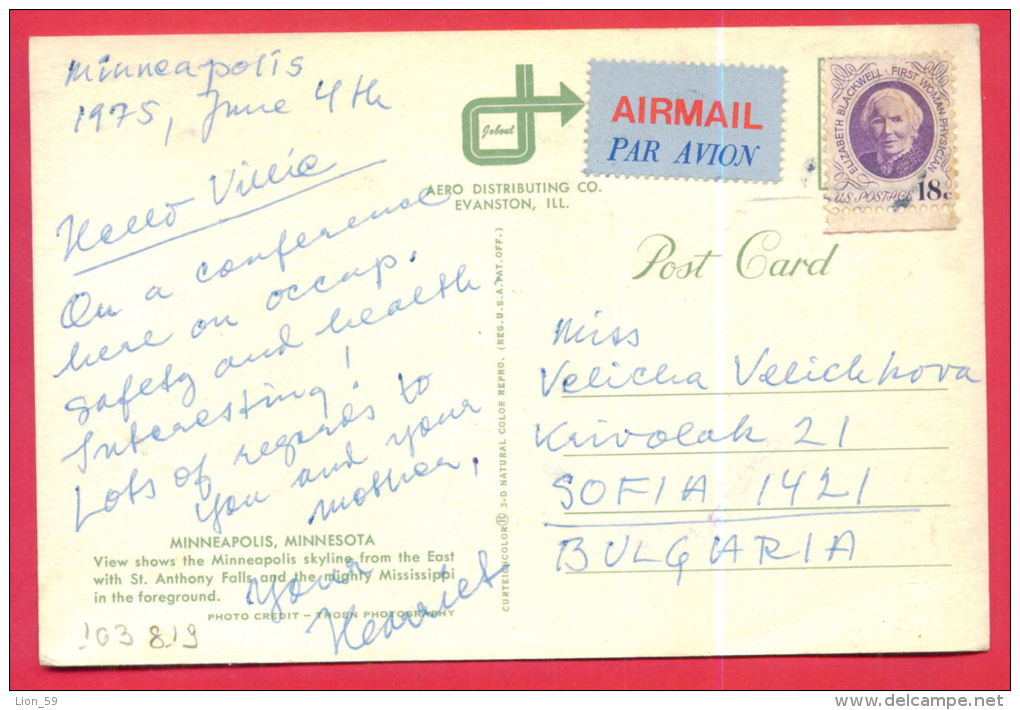 Minneapolis
1975, June 4th
Hello Villie
On a conference
here on occup.
safety and health.
Interesting!
Lots of regards to
you and your
mother,
Your
MINNEAPOLIS, MINNESOTA
View shows the Minneapolis skyline from the East
with St. Anthony Falls and the mighty Mississippi
in the foreground.
PHOTO CREDIT – THOEN PHOTOGRAPHY
103819
Joboul
AERO DISTRIBUTING CO.
EVANSTON, ILL.
CURTEICHCOLOR 3-D NATURAL COLOR REPRO. (REG. U.S.A. PAT. OFF.)
AIRMAIL
PAR AVION
ELIZABETH BLACKWELL · FIRST WOMAN PHYSICIAN
US POSTAGE 18c
Post Card
Miss
Velicka Velichkova
Krivolak 21
SOFIA 1421
BULGARIA
Lion_59
delcampe.net